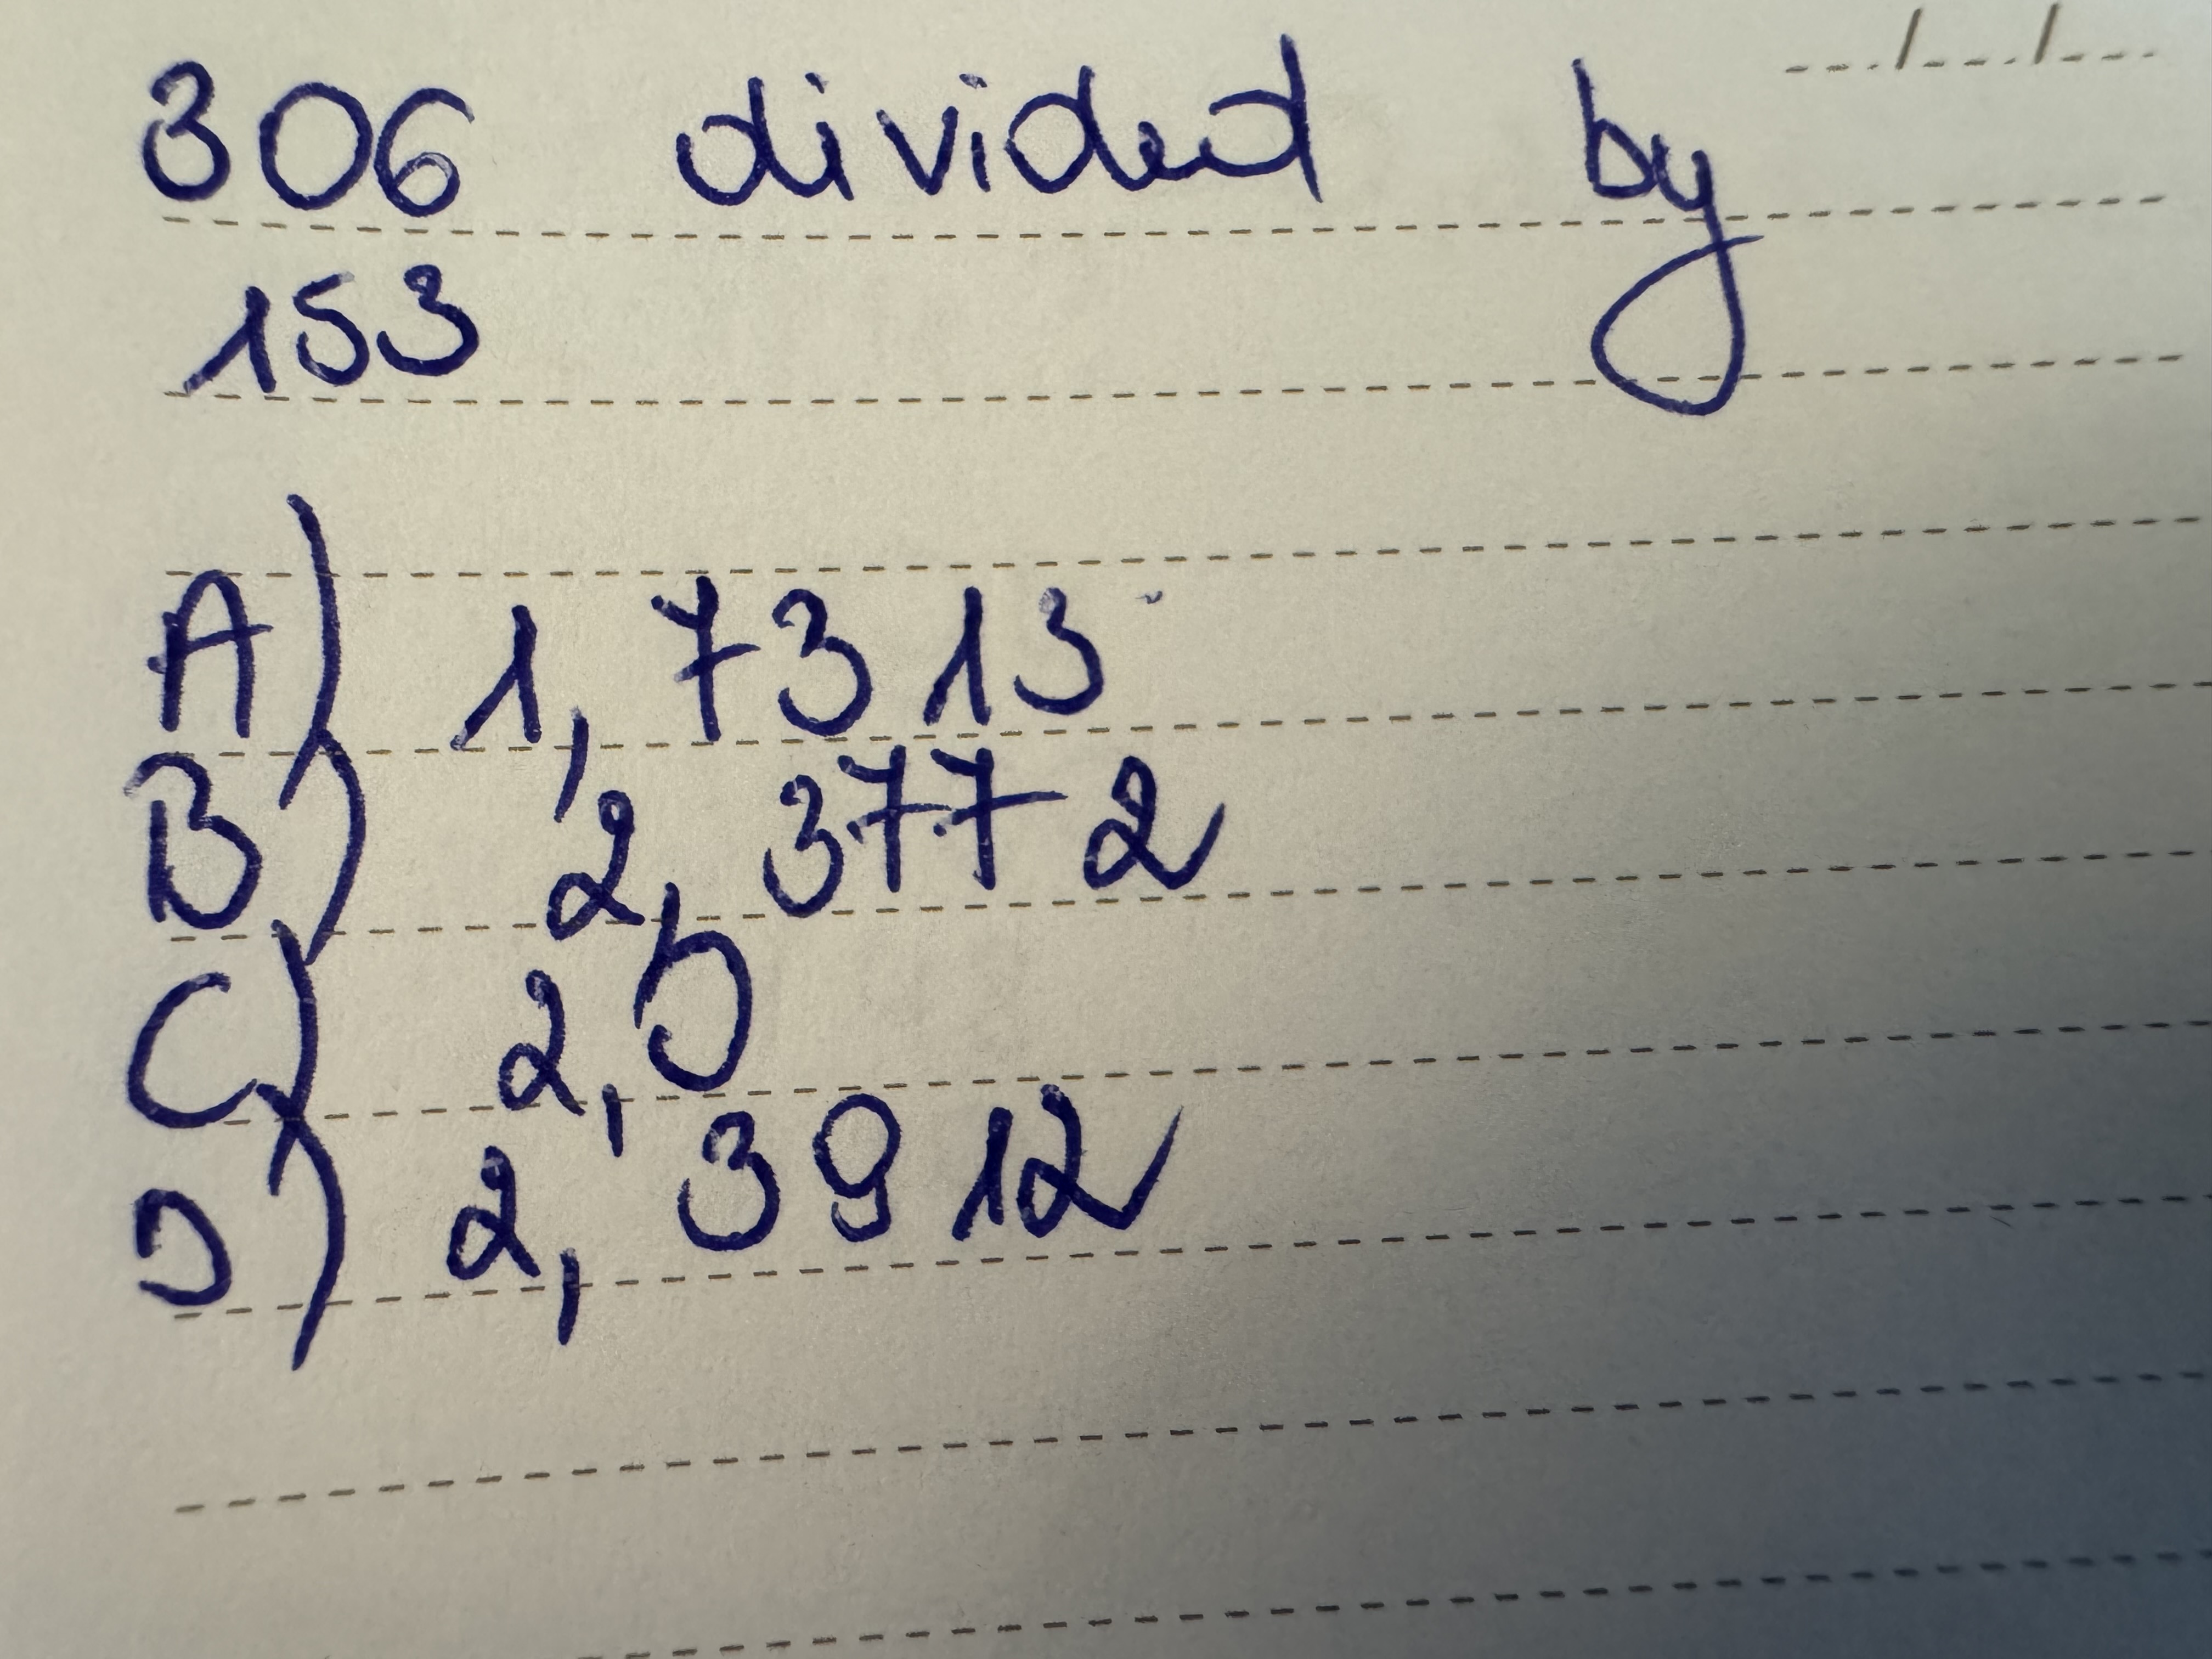 306 divided by
153
A) 1,7313
B) 2,3772
C) 2,5
D) 2,3912